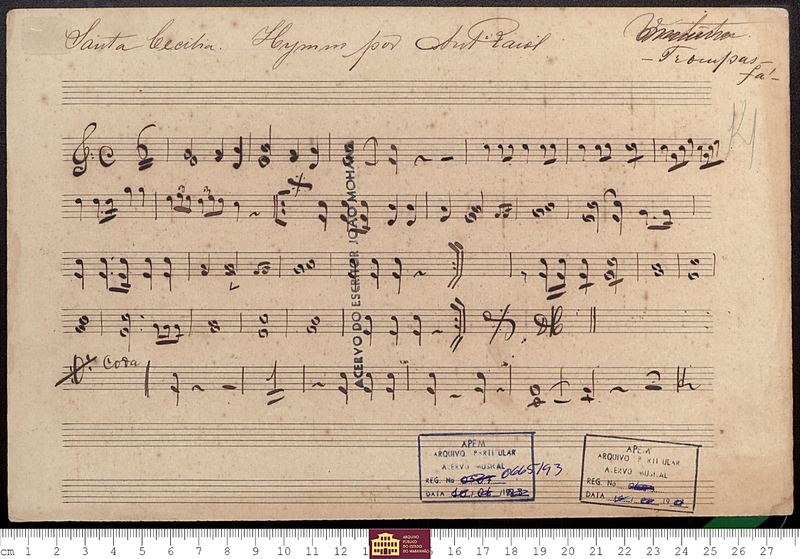 Santa Cecilia. Hymno por Antº Raiol
- Trompas -
fá -
3
3
ACERVO DO ESCRITOR JOÃO MOHANA
Coda
APEM
ARQUIVO PARTICULAR
ACERVO MUSICAL
REG. No 0665/93
DATA
APEM
ARQUIVO PARTICULAR
ACERVO MUSICAL
REG. No
DATA
cm 1 2 3 4 5 6 7 8 9 10 11 12 16 17 18 19 20 21 22 23 24 25 26 27
ARQUIVO
PÚBLICO
DO ESTADO
DO MARANHÃO